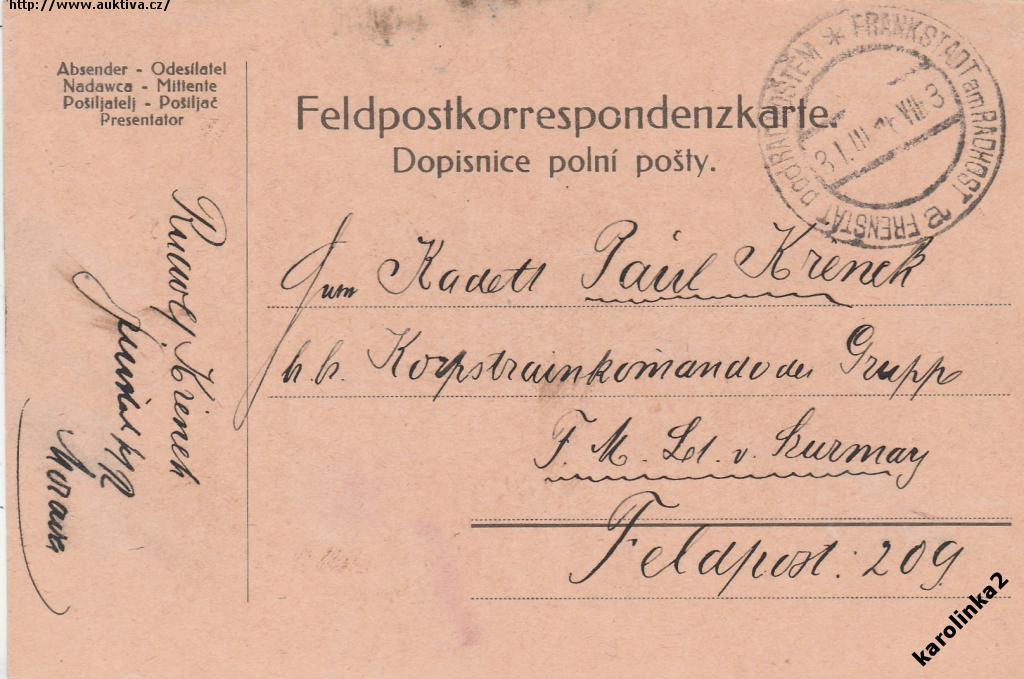 http://www.auktiva.cz/
Absender - Odesílatel
Nadawca - Mittente
Pošiljatelj - Pošiljač
Presentator
Feldpostkorrespondenzkarte.
Dopisnice polní pošty.
FRANKSTADT am RADHOST
FRENSTÁT pod RADHOSTĚM
31. III
Kadett Paul Krenek
Korpstrainkomando der Grupp
F. M. Lt. v. Szurmay
Feldpost: 209
Krenek
karolinka2